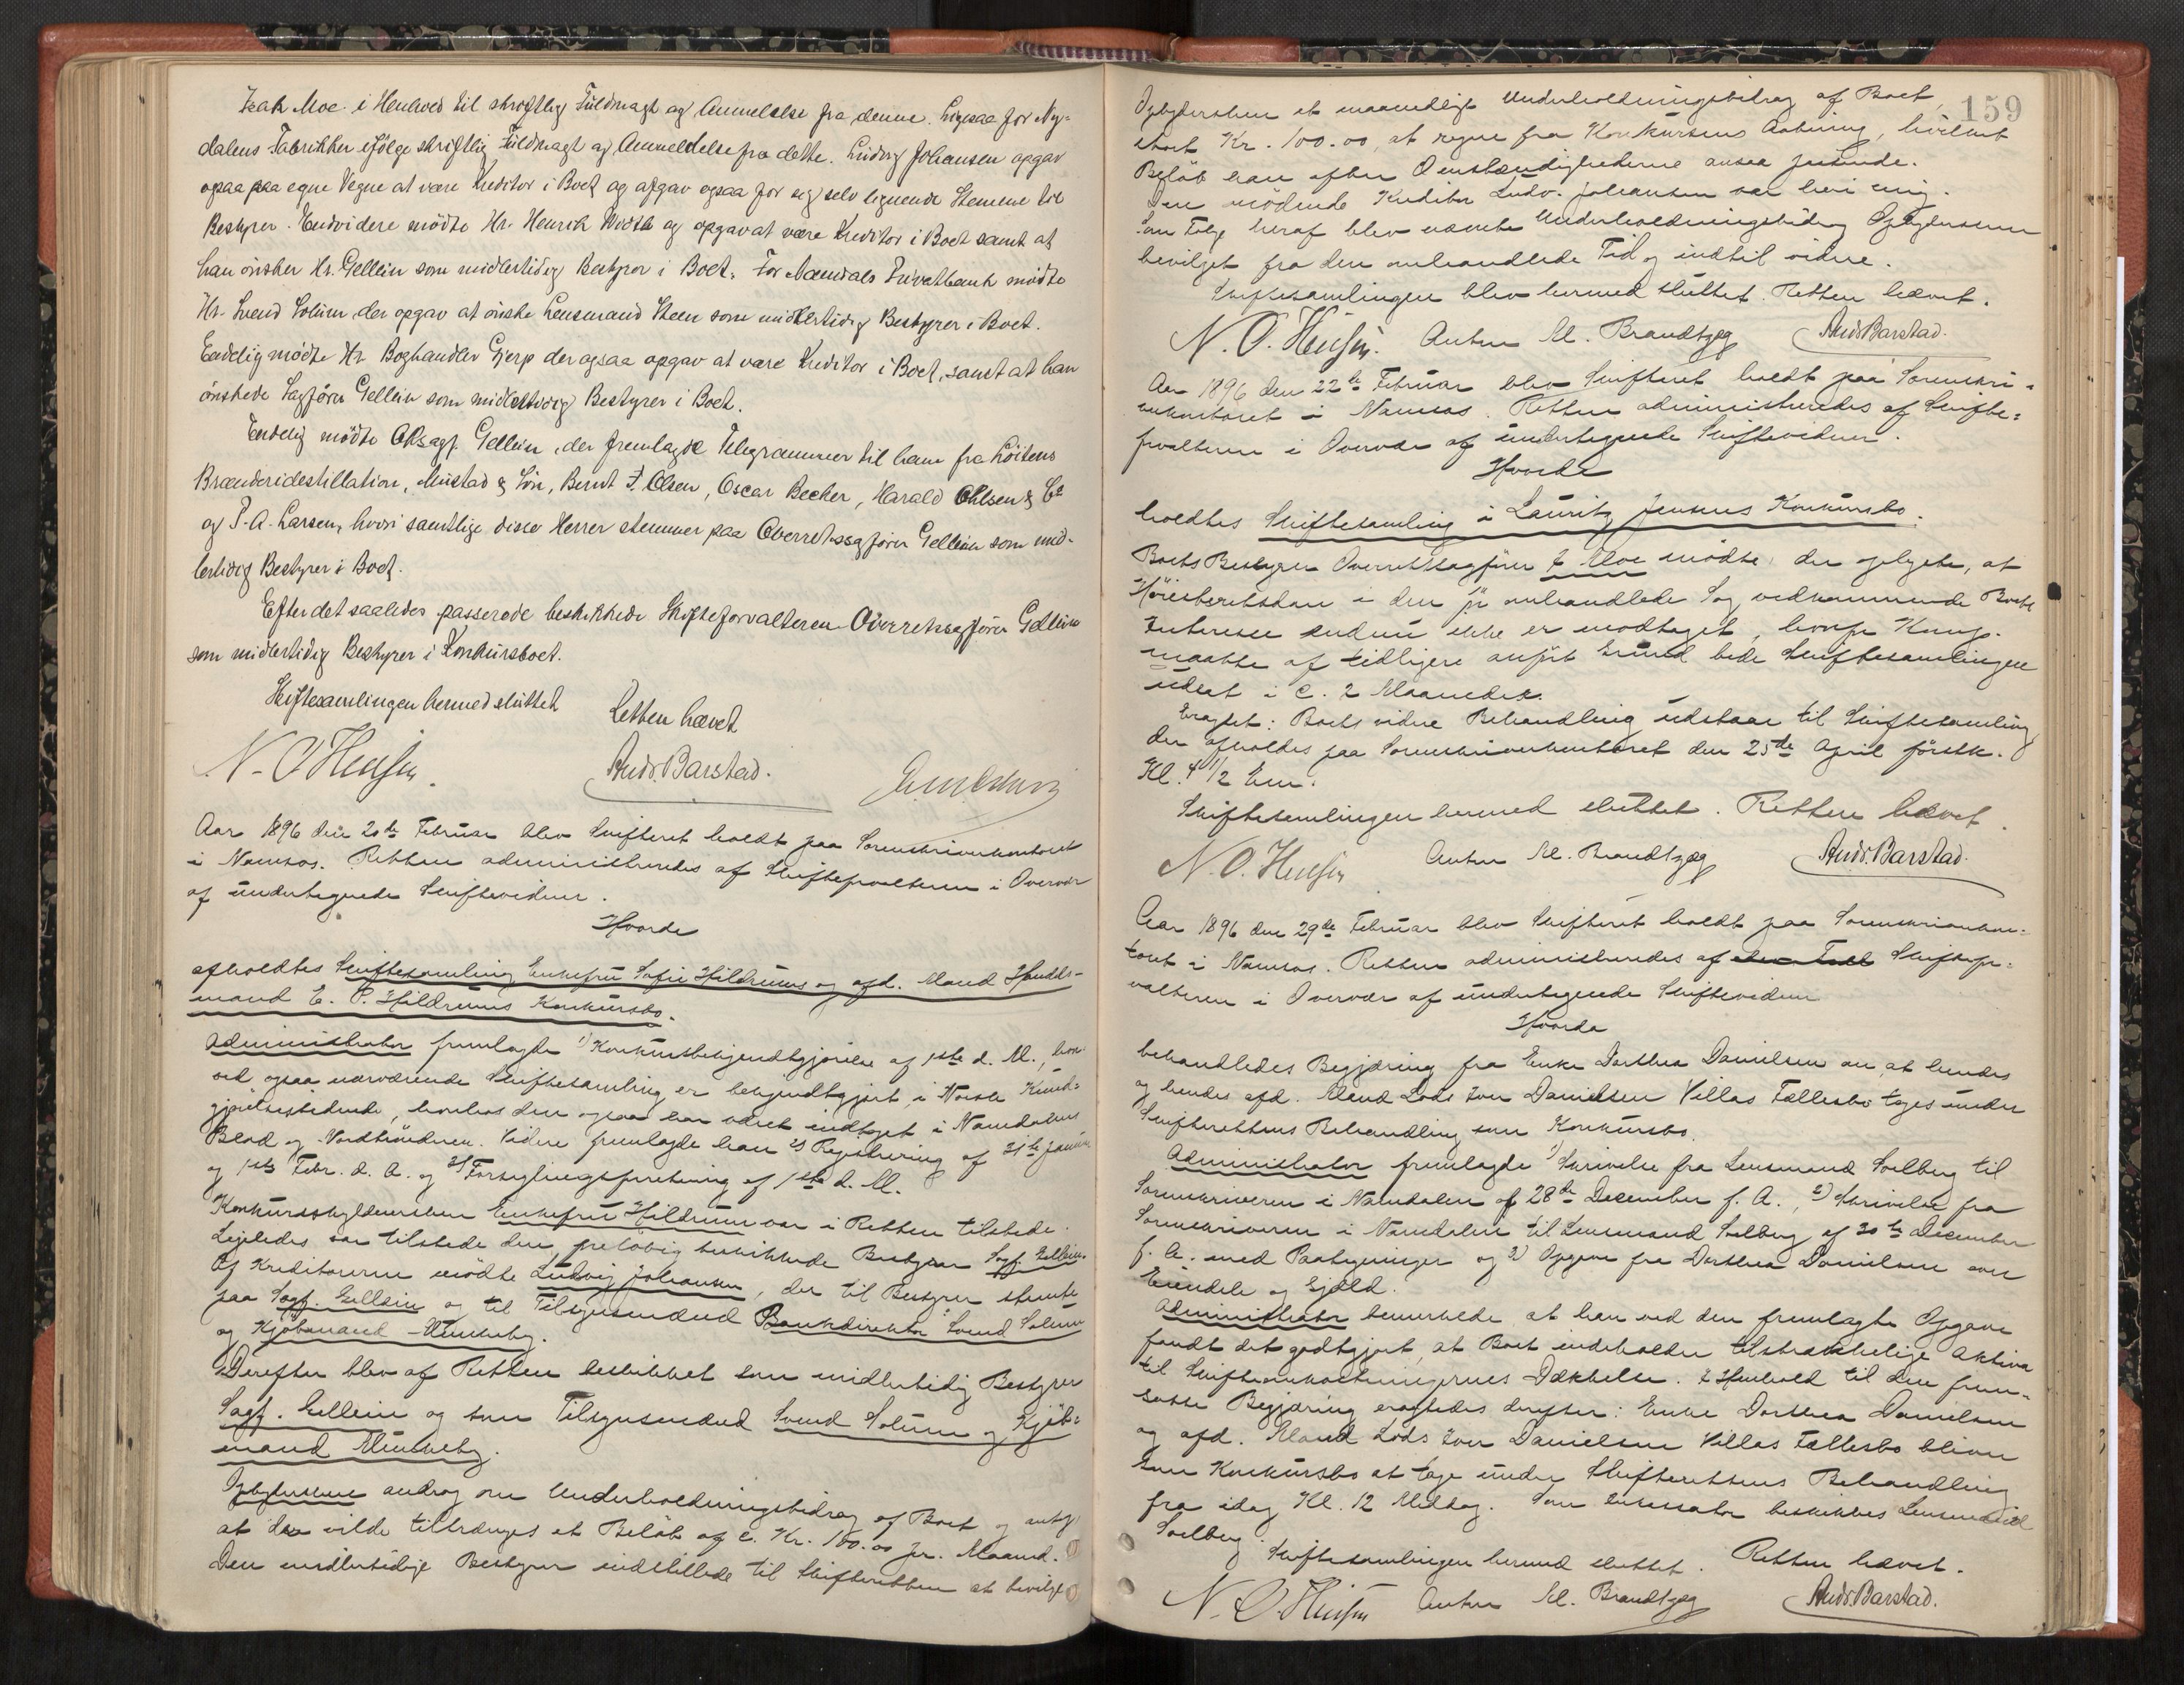 Isak Moe i Henhold til skriftlig Fuldmagt og Anmeldelse fra denne. Ligesaa for Ny-
dalens Fabrikker ifölge skriftlig Fuldmagt og Anmeldelse fra dette. Ludvig Johansen opgav
ogsaa paa egne Vegne at være Kreditor i Boet og afgav ogsaa for sig selv lignende Stemme til
Bestyrer. Endvidere mödte Hr. Henrik og opgav at være Kreditor i Boet samt at
han önsker Hr. Gellein som midlertidig Bestyrer i Boet. For Namdals Privatbank mödte
Hr. Svend Solum der opgav at önske Lensmand Steen som midlertidig Bestyrer i Boet.
Endelig mödte Hr. Boghandler Gjerp der ogsaa opgav at være Kreditor i Boet, samt at han
önskede Sagförer Gellein som midlertidig Bestyrer i Boet.
Endelig mödte ORsagf. Gellein, der fremlagde Telegrammer til ham fra Löitens
Brænderidestillation, Mustad & Sön, Bernt I. Olsen, Oscar Becker, Harald Ohlsen & Co
og P. A. Larsen, hvori samtlige disse Herrer stemmer paa Overretssagförer Gellein som mid-
lertidig Bestyrer i Boet.
Efter det saaledes passerede beskikkede Skifteforvalteren Overretssagförer Gellein
som midlertidig Bestyrer i Konkursboet.
Skiftesamlingen hermed sluttet Retten hævet
N. O. Hensen. Andr. Barstad.
Aar 1896 den 20de Februar blev Skifteret holdt paa Sorenskriverkontoret
i Namsos. Retten administreredes af Skifteforvalteren i Overvær
af undertegnede Skiftevidner.
Hvorda
afholdtes Skiftesamling Enkefru Sofie Hildrums og afd. Mand Handels-
mand E. P. Hildrums Konkursbo.
Administrator fremlagde 1) Konkursbekjendtgjörelse af 1ste d. M., hvor-
ved ogsaa nærværende Skiftesamling er bekjendtgjort i Norsk Kund-
gjörelsestidende, hvorhos den ogsaa har været indtaget i Namdalens
Blad og Nordtrönderen. Videre fremlagde han 2) Registrering af 31te Januar
og 1ste Febr. d. A. og 3) Forseglingsforretning af 1ste d. M.
Konkursskyldnersken Enkefru Hildrum var i Retten tilstede.
Ligeledes var tilstede den foreløbig beskikkede Bestyrer Sagf. Gellein.
Af Kreditorerne mödte Ludvig Johansen, der til Bestyrer stemte
paa Sagf. Gellein og til Tilsynsmænd Bankdirektör Svend Solum
og Kjöbmand Munkeby.
Derefter blev af Retten beskikket som midlertidig Bestyrer
Sagf. Gellein og som Tilsynsmænd Svend Solum og Kjöb-
mand Munkeby.
Opbydersken androg om Underholdningsbidrag af Boet og antog
at der vilde tiltrænges et Belöb af c. Kr. 100.00 pr. Maaned.
Den midlertidige Bestyrer indstillede til Skifteretten at bevilge
159
Opbydersken et maanedligt Underholdningsbidrag af Boet,
stort Kr. 100.00, at regne fra Konkursens Aabning, hvilket
Belöb han efter Omstændighederne ansaa passende.
Den mödende Kreditor Ludv. Johansen var heri enig.
Som Fölge heraf blev nævnte Underholdningsbidrag Opbydersken
bevilget fra den omhandlede Tid og indtil videre.
Skiftesamlingen blev hermed sluttet. Retten hævet.
N. O. Hensen. Anton M. Brandtzæg Andr. Barstad.
Aar 1896 den 22de Februar blev Skifteret holdt paa Sorenskri-
verkontoret i Namsos. Retten administreredes af Skifte-
forvalteren i Overvær af undertegnede Skiftevidner.
Hvorda
holdtes Skiftesamling i Lauritz Jensens Konkursbo.
Boets Bestyrer Overretssagförer I. Moe mödte, der oplyste, at
Höiesteretsdom i den för omhandlede Sag vedkommende Boets
Interesse endnu ikke er modtaget, hvorfor Komp.
maatte af tidligere anfört Grund bede Skiftesamlingen
udsat i c. 2 Maaneder.
Eragtet: Boets videre Behandling udstaar til Skiftesamling
der afholdes paa Sorenskriverkontoret den 25de April förstk.
Kl. 4 1/2 Em.
Skiftesamlingen hermed sluttet. Retten hævet.
N. O. Hensen Anton M. Brandtzæg Andr. Barstad.
Aar 1896 den 29de Februar blev Skifteret holdt paa Sorenskriverkon-
toret i Namsos. Retten administreredes af Skiftefor-
valteren i Overvær af undertegnede Skiftevidner
Hvorda
behandledes Begjæring fra Enke Dorthea Danielsen om, at hendes
og hendes afd. Mand Lods Iver Danielsen Villas Fællesbo tages under
Skifterettens Behandling som Konkursbo.
Administrator fremlagde 1) Skrivelse fra Lensmand Solberg til
Sorenskriveren i Namdalen af 28de December f. A., 2) Skrivelse fra
Sorenskriveren i Namdalen til Lensmand Solberg af 30te December
f. A. med Paategninger og 3) Opgave fra Dorthea Danielsen over
Eiendele og Gjæld.
Administrator bemærkede, at han ved den fremlagte Opgave
fandt det godtgjort, at Boet indeholder tilstrækkelige Aktiva
til Skifteomkostningernes Dækkelse. I Henhold til den frem-
satte Begjæring eragtedes derefter: Enke Dorthea Danielsen
og afd. Mand Lods Iver Danielsen Villas Fællesbo bliver
som Konkursbo at tage under Skifterettens Behandling
fra idag Kl. 12 Middag. Som beskikkes Lensmand
Solberg.
Skiftesamlingen hermed sluttet. Retten hævet.
N. O. Hensen Anton M. Brandtzæg Andr. Barstad.